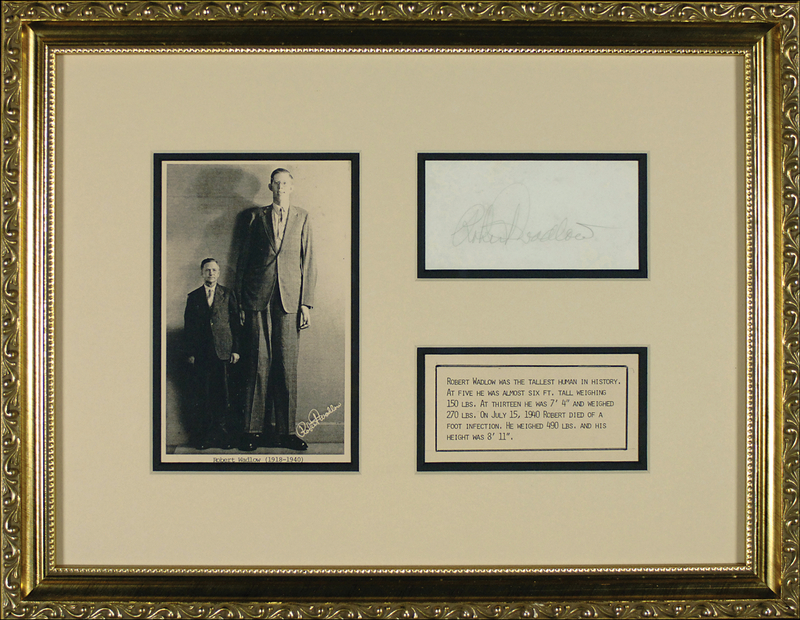 Robert Wadlow
Robert Wadlow
Robert Wadlow (1918-1940)
ROBERT WADLOW WAS THE TALLEST HUMAN IN HISTORY.
AT FIVE HE WAS ALMOST SIX FT. TALL WEIGHING
150 LBS. AT THIRTEEN HE WAS 7' 4" AND WEIGHED
270 LBS. ON JULY 15, 1940 ROBERT DIED OF A
FOOT INFECTION. HE WEIGHED 490 LBS. AND HIS
HEIGHT WAS 8' 11".